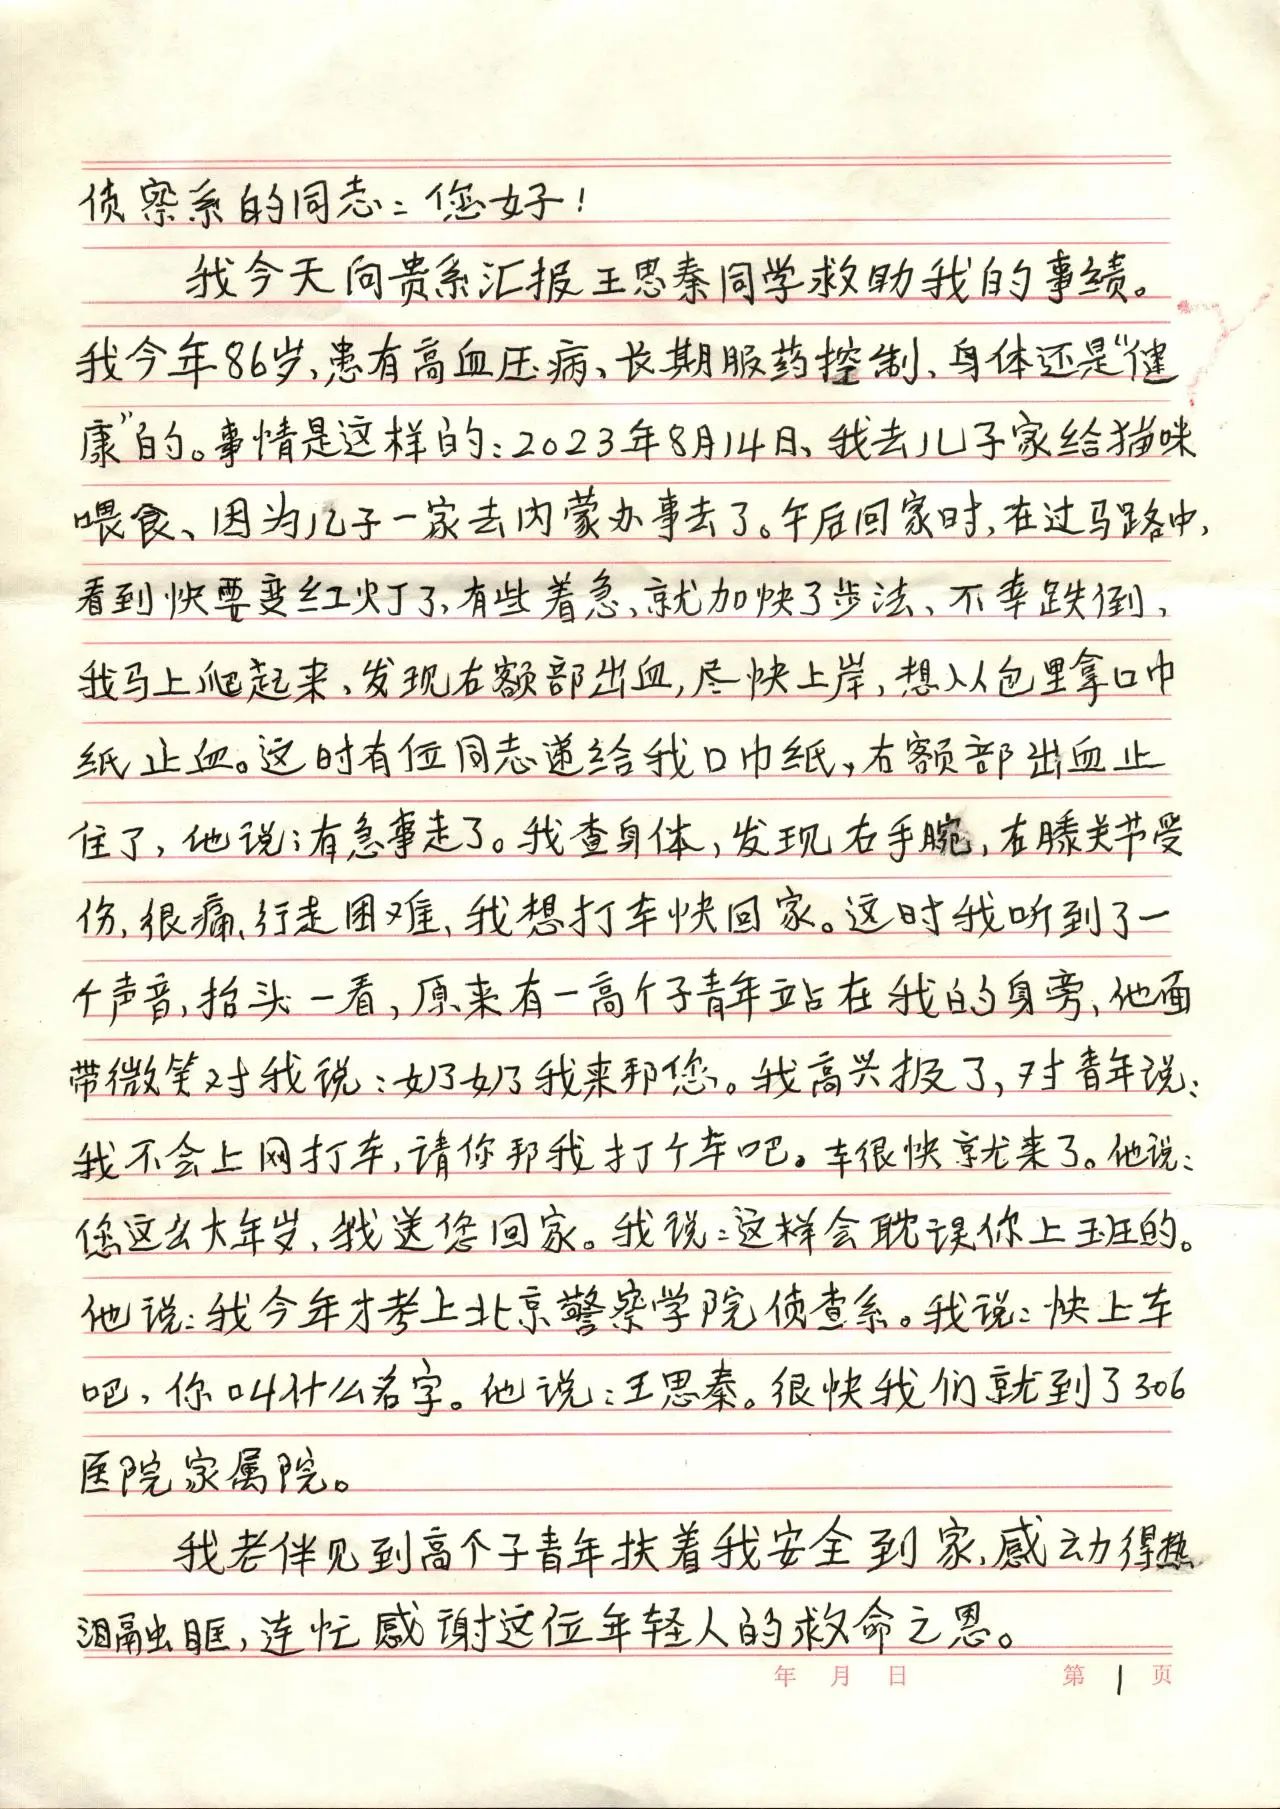 侦察系的同志：您好！
我今天向贵系汇报王思秦同学救助我的事绩。
我今年86岁，患有高血压病、长期服药控制、身体还是“健
康”的。事情是这样的：2023年8月14日、我去儿子家给猫咪
喂食、因为儿子一家去内蒙办事去了。午后回家时，在过马路中，
看到快要变红灯了，有些着急，就加快了步法、不幸跌倒，
我马上爬起来，发现右额部出血，尽快上岸，想从包里拿口巾
纸止血。这时有位同志递给我口巾纸，右额部出血止
住了，他说：有急事走了。我查身体，发现右手腕，右膝关节受
伤，很痛，行走困难、我想打车快回家。这时我听到了一
个声音，抬头一看，原来有一高个子青年站在我的身旁、他面
带微笑对我说：奶奶我来邦您。我高兴极了，对青年说：
我不会上网打车，请你邦我打个车吧。车很快就来了。他说：
您这么大年岁，我送您回家。我说：这样会耽误你上班的。
他说：我今年才考上北京警察学院侦查系。我说：快上车
吧，你叫什么名字。他说：王思秦。很快我们就到了306
医院家属院。
我老伴见到高个子青年扶着我安全到家，感动得热
泪融虫眶，连忙感谢这位年轻人的救命之恩。
年 月 日 第 1 页